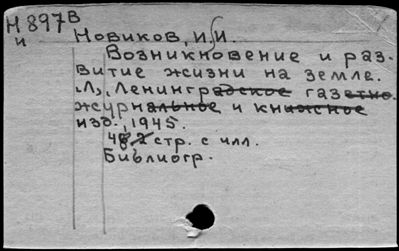 Н 897В
и Новиков, И.И.
Возникновение и раз-
витие жизни на земле.
Л., Ленинградское газетно-
журнальное и книжное
изд., 1945.
48, 2 стр. с илл.
Библиогр.